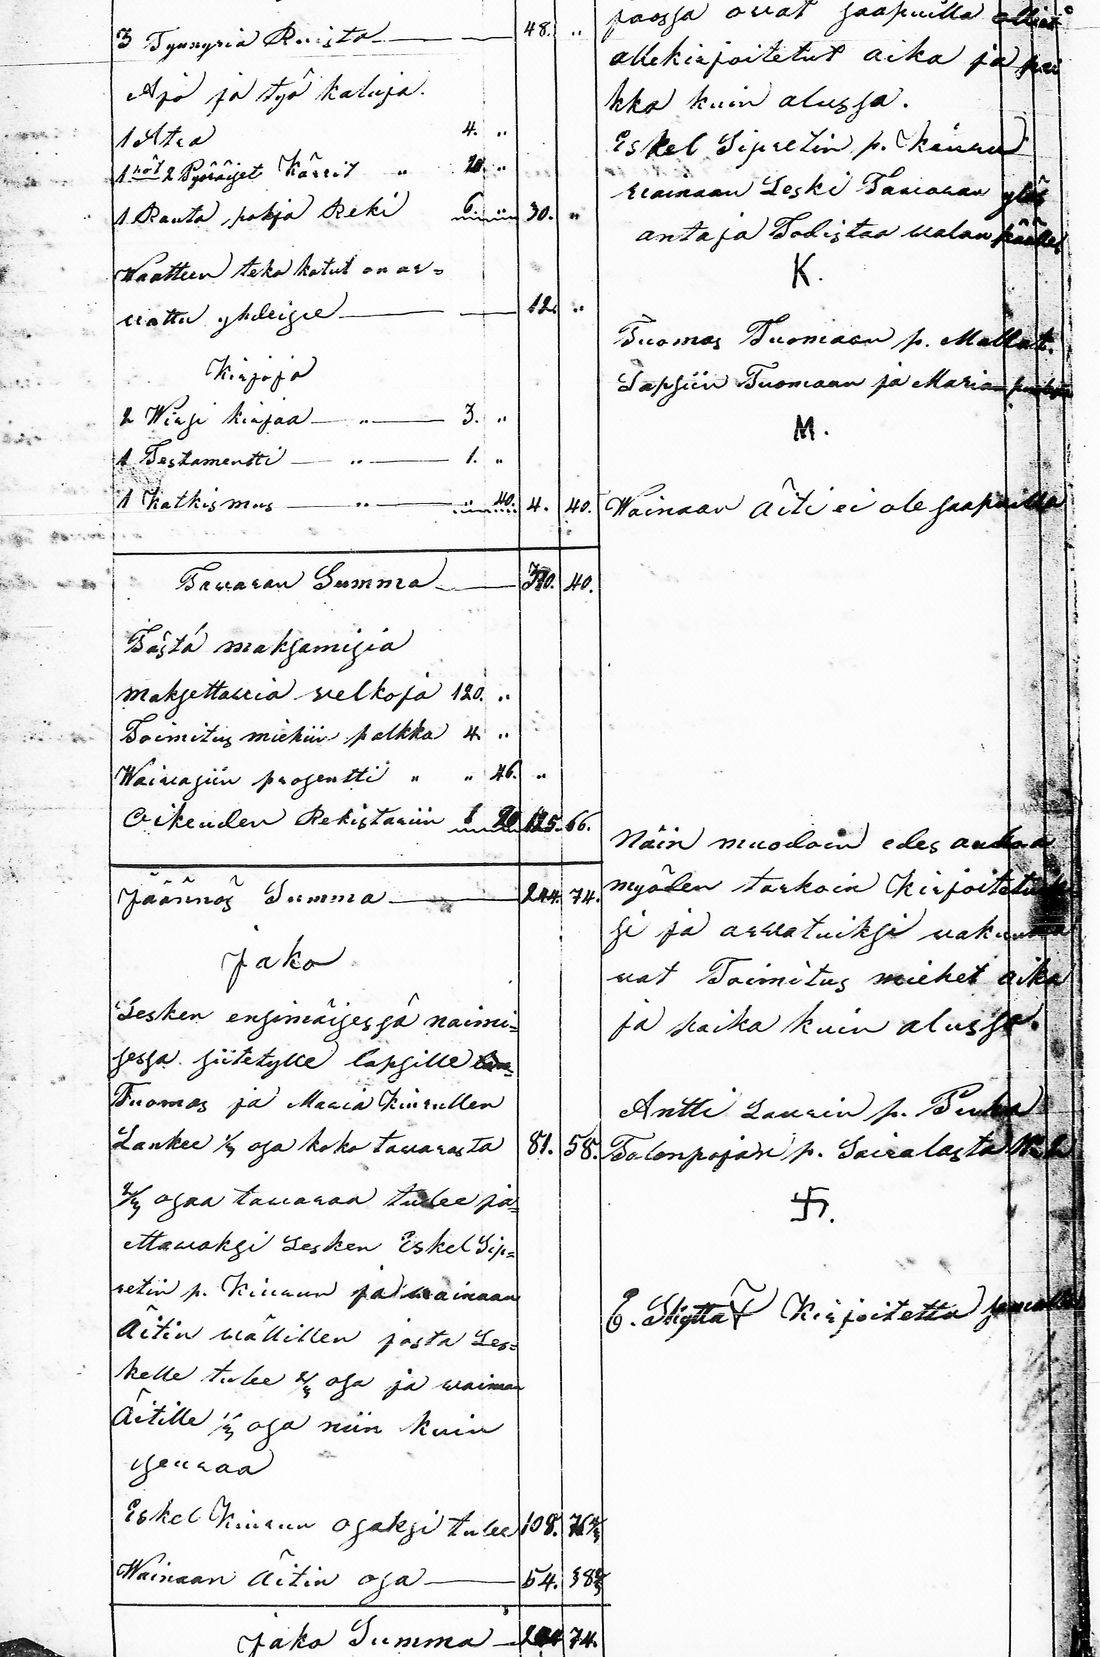 3 Tynnyriä Ruista — 48. "
Ajo ja työ kaluja.
1 Atra 4. "
1 nöt 2 Pyöräiset Kärrit " 20. "
1 Rauta pohja Reki 6. " 30. "
Waatteen teko katut on ar=
wattu yhdeixe — 12. "
Kirjoja
2 Wirsi kirjaa — " — 3. "
1 Testamentti — " — 1. "
1 Katkismus — " — " 40. 4. 40.
Tawaran Summa — 370. 40.
Tästä maksamisia
maksettawia welkoja 120. "
Toimitus miehiin palkka 4. "
Waiwasiin prosentti " " 46. "
Oikeuden Rekistariin 1 20 125. 66.
Jäännös Summa — 244. 74.
Jako
Lesken ensimäisessä naimi=
sessa siitetylle lapsille
Tuomas ja Maria Kiurullen
Lankee 1/3 osa koko tawarasta 81. 58.
2/3 osaa tawaraa tulee ja=
ettawaksi Lesken Eskel Sip=
retin p. Kiurun ja wainaan
Äitin wälillen josta Les=
kelle tulee 2/3 osa ja wainaan
Äitille 1/3 osa niin kuin
seuraa
Eskel Kiurun osaksi tulee 108. 76 2/3
Wainaan Äitin osa — 54. 38 2/3
Jako Summa — 244 74.
jaossa owat saapuilla olliet
allekirjoitetut aika ja pai
kka kuin alussa.
Eskel Sipretin p. Kiuru
wainaan Leski Tawaran ylös
antaja Todistaa walan päälle
K.
Tuomas Tuomaan p. Mallat.
Lapsiin Tuomaan ja Marian
M.
Wainaan Äiti ei ole saapuilla
Näin muodoin edes andoa
myöden tarkoin Kirjoitetu
si ja arwatuiksi wakuutta
wat Toimitus miehet aika
ja paika kuin alussa.
Antti Laurin p.
Talonpojan p. Sairalasta No 2
卐.
E. Kirjoitetta samalla